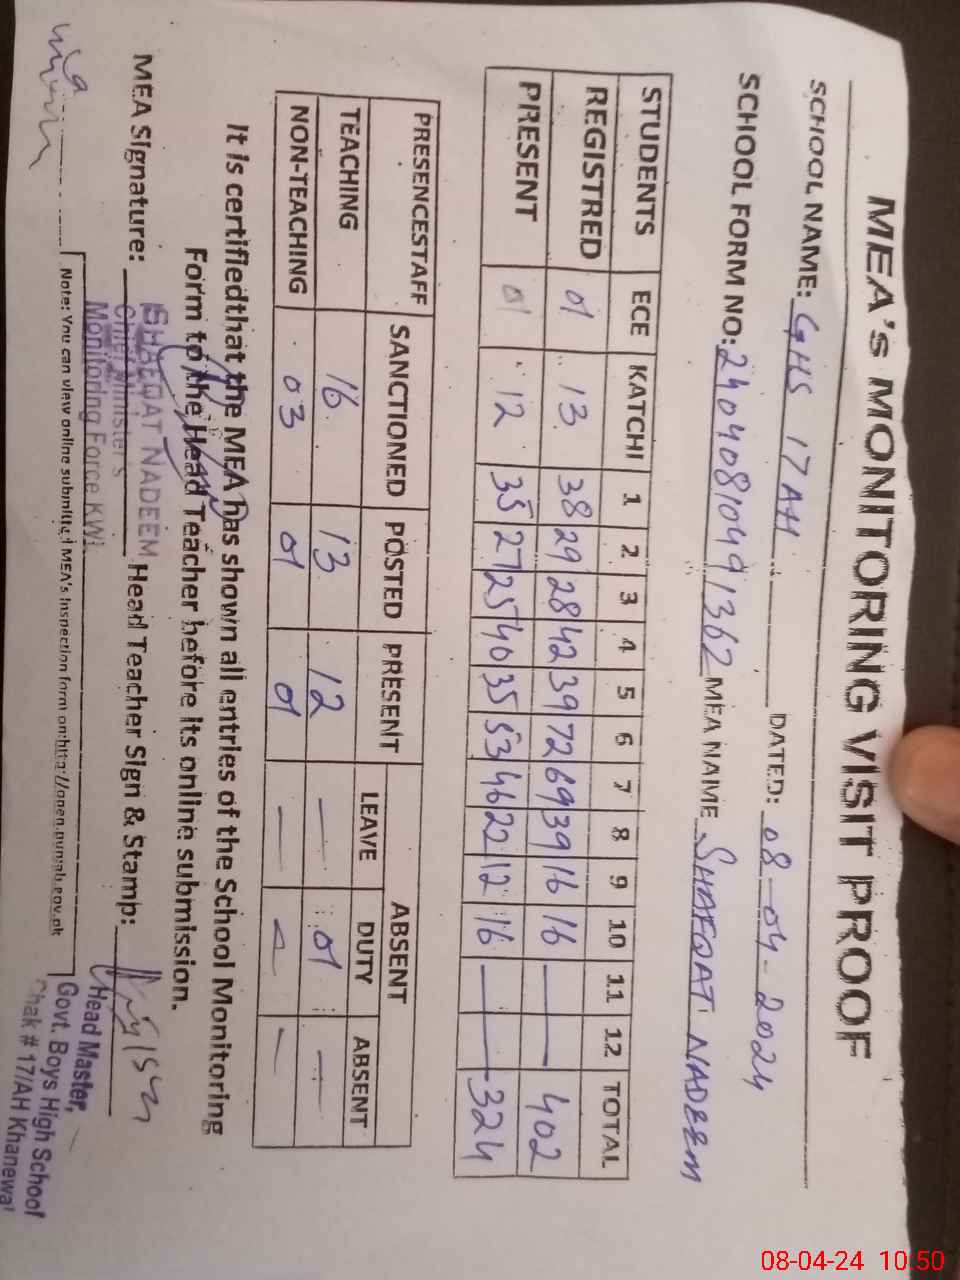 MEA's MONITORING VISIT PROOF
SCHOOL NAME: GHS 17 AH DATED: 08-04-2024
SCHOOL FORM NO: 24040810491362 MEA NAME SHAFQAT NADEEM
STUDENTS ECE KATCHI 1 2 3 4 5 6 7 8 9 10 11 12 TOTAL
REGISTRED 01 13 38 29 28 42 39 72 69 39 16 16 — — 402
PRESENT 01 12 35 27 25 40 35 53 46 22 12 16 — — 324
PRESENCESTAFF SANCTIONED POSTED PRESENT ABSENT
LEAVE DUTY ABSENT
TEACHING 16 13 12 — 01 —
NON-TEACHING 03 01 01 — — —
It is certifiedthat the MEA has shown all entries of the School Monitoring
Form to the Head Teacher before its online submission.
MEA Signature: SHAFQAT NADEEM Head Teacher Sign & Stamp:
Chief Minister's
Monitoring Force KWL
Head Master,
Govt. Boys High School
Chak # 17/AH Khanewal
Note: You can view online submitted MEA's Inspection form on:http://open.punjab.gov.pk
08-04-24 10:50